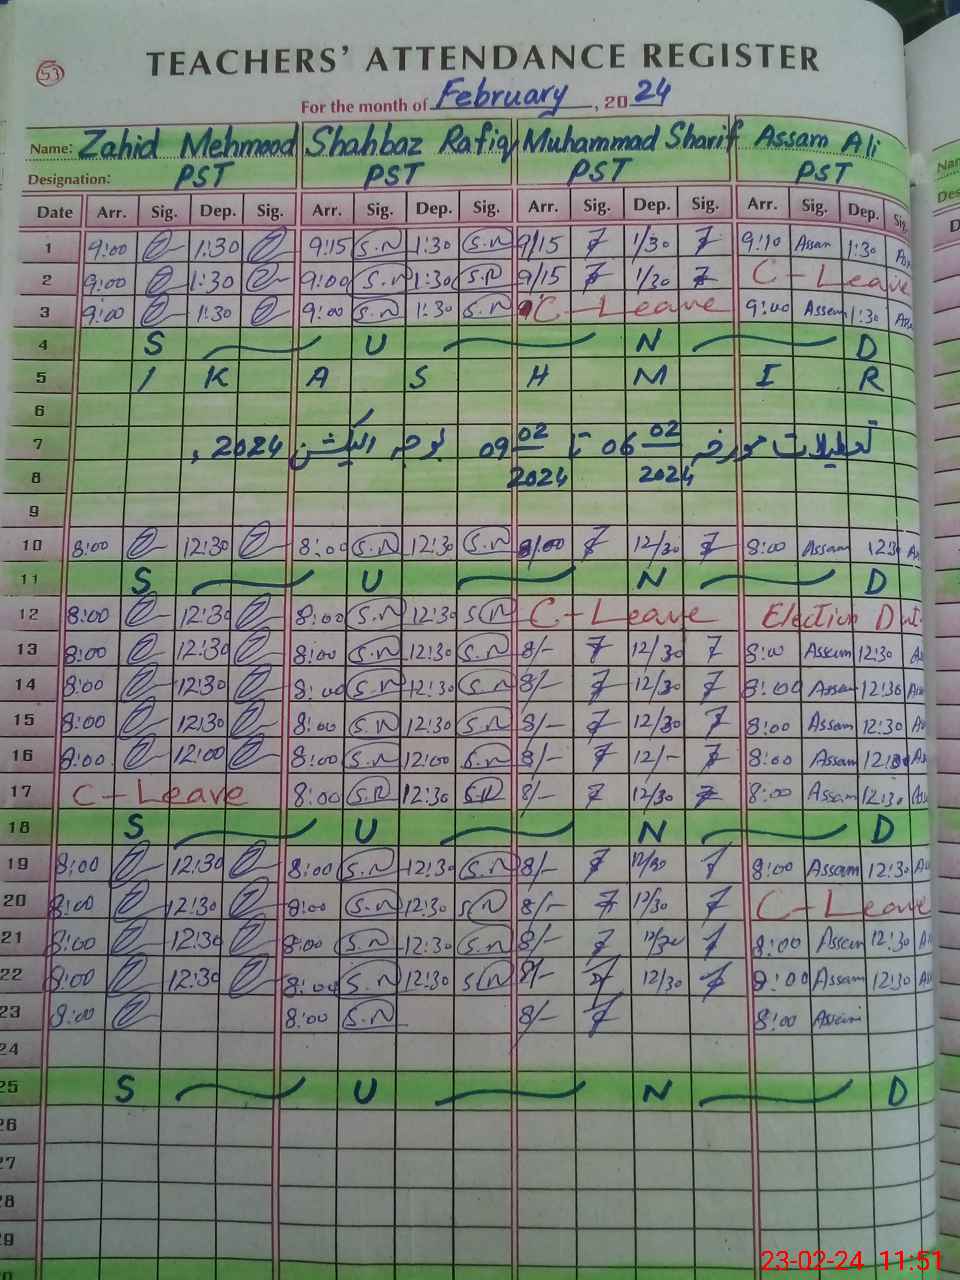 53
TEACHERS' ATTENDANCE REGISTER
For the month of February, 2024
Name: Zahid Mehmood Shahbaz Rafiq Muhammad Sharif Assam Ali
Designation: PST PST PST PST
Date Arr. Sig. Dep. Sig. Arr. Sig. Dep. Sig. Arr. Sig. Dep. Sig. Arr. Sig. Dep. Sig.
1 9:00 1:30 9:15 S.N 1:30 S.N 9/15 1/30 9:10 Assam 1:30
2 9:00 1:30 9:00 S.N 1:30 S.N 9/15 1/30 C-Leave
3 9:00 1:30 9:00 S.N 1:30 S.N C-Leave 9:00 Assam 1:30
4 S U N D
5 I K A S H M I R
6
7 تعطیلات مورخہ 06 02 2024 تا 09 02 2024 بوجہ الیکشن 2024,
8
9
10 8:00 12:30 8:00 S.N 12:30 S.N 8/00 12/30 8:00 Assam 12:30
11 S U N D
12 8:00 12:30 8:00 S.N 12:30 S.N C-Leave Election
13 8:00 12:30 8:00 S.N 12:30 S.N 8/- 12/30 8:00 Assam 12:30
14 8:00 12:30 8:00 S.N 12:30 S.N 8/- 12/30 8:00 Assam 12:30
15 8:00 12:30 8:00 S.N 12:30 S.N 8/- 12/30 8:00 Assam 12:30
16 8:00 12:00 8:00 S.N 12:00 S.N 8/- 12/- 8:00 Assam
17 C-Leave 8:00 S.N 12:30 S.N 8/- 12/30 8:00 Assam 12:30
18 S U N D
19 8:00 12:30 8:00 S.N 12:30 S.N 8/- 12/30 8:00 Assam 12:30
20 8:00 12:30 8:00 S.N 12:30 S.N 8/- 12/30 C-Leave
21 8:00 12:30 8:00 S.N 12:30 S.N 8/- 12/30 8:00 Assam 12:30
22 8:00 12:30 8:00 S.N 12:30 S.N 8/- 12/30 8:00 Assam 12:30
23 8:00 8:00 S.N 8/- 8:00 Assam
24
25 S U N D
26
27
28
29
23-02-24 11:51